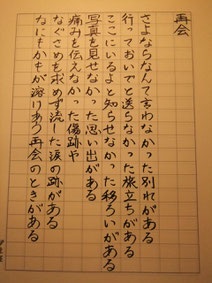 再会
さよならなんて言わなかった別れがある
行っておいでと送らなかった旅立ちがある
ここにいるよと知らせなかった移ろいがある
写真を見せなかった思い出がある
痛みを伝えなかった傷跡や
なぐさめを求めず流した涙の跡がある
なにもかもが溶けあう再会のときがある